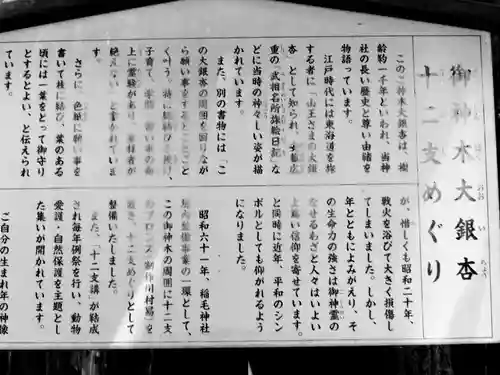 御神木大銀杏
十二支めぐり
この御神木大銀杏は、樹
齢約一千年といわれ、当神
社の長い歴史と尊い由緒を
物語っています。
江戸時代には東海道を旅
する者に「山王さまの大銀
杏」として知られ、
重の「武相名所旅絵日記」な
どに当時の神々しい姿が描
かれています。
また、別の書物には「こ
の大銀杏の周囲を回りなが
ら願い事をするとことごと
く叶う。特に
子育て、
上に霊験があり、
絶えない」と書かれていま
す。
さらに、色紙に願い事を
書いて枝に結び、葉のある
頃には一葉をとって御守り
とするとよい、と伝えられ
ています。
が、惜しくも昭和二十年、
戦火を浴びて大きく損傷し
てしまいました。しかし、
年とともによみがえり、そ
の生命力の強さは御神霊の
なせるわざと人々はいよい
よ篤い信仰を寄せています。
と同時に近年、平和のシン
ボルとしても仰がれるよう
になりました。
昭和六十一年、稲毛神社
境内整備事業の一環として、
この御神木の周囲に十二支
のブロンズ
置き、十二支めぐりとして
整備いたしました。
また、「十二支講」が結成
され毎年例祭を行い、動物
愛護・自然保護を主題とし
た集いが開かれています。
ご自分の生まれ年の神像